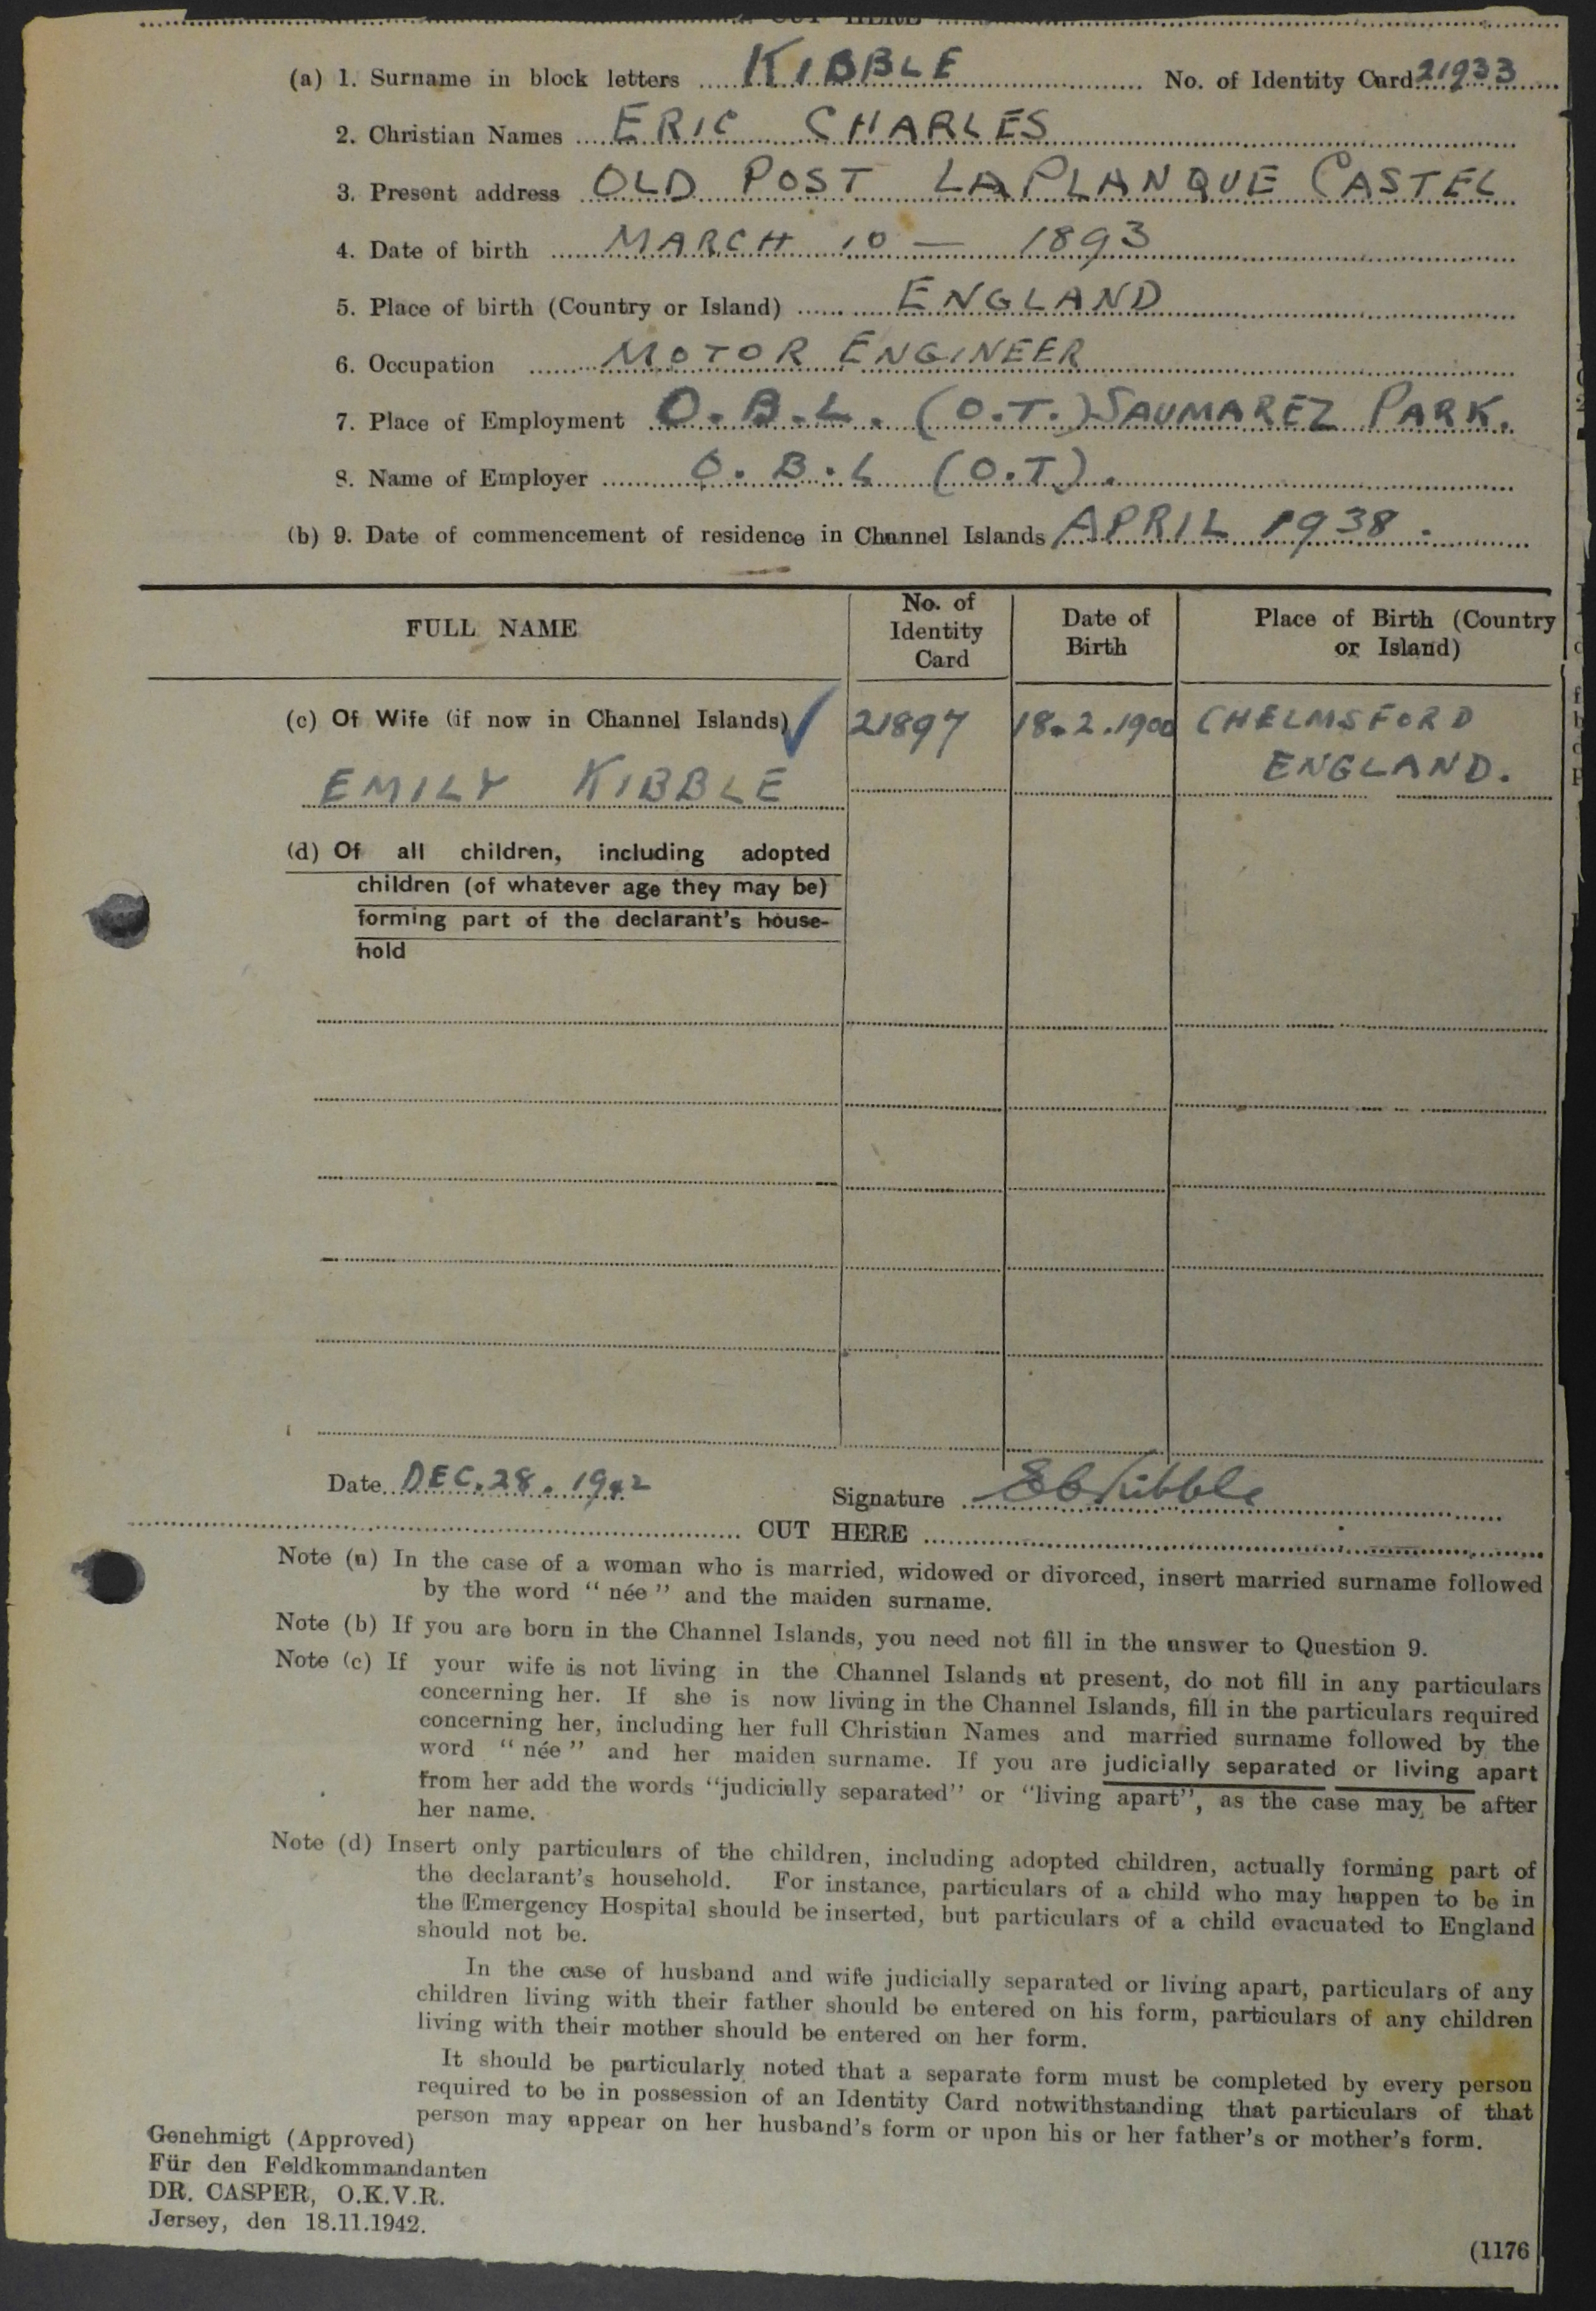 CUT HERE
(a) 1. Surname in block letters KIBBLE No. of Identity Card 21933
2. Christian Names ERIC CHARLES
3. Present address OLD POST LA PLANQUE CASTEL
4. Date of birth MARCH 10 — 1893
5. Place of birth (Country or Island) ENGLAND
6. Occupation MOTOR ENGINEER
7. Place of Employment O.B.L. (O.T.) SAUMAREZ PARK.
8. Name of Employer O.B.L (O.T).
(b) 9. Date of commencement of residence in Channel Islands APRIL 1938.
FULL NAME
No. of Identity Card
Date of Birth
Place of Birth (Country or Island)
(c) Of Wife (if now in Channel Islands) 21897 18.2.1900 CHELMSFORD
EMILY KIBBLE ENGLAND.
(d) Of all children, including adopted
children (of whatever age they may be)
forming part of the declarant's house-
hold
Date DEC. 28. 1942 Signature E C Kibble
CUT HERE
Note (a) In the case of a woman who is married, widowed or divorced, insert married surname followed
by the word "née" and the maiden surname.
Note (b) If you are born in the Channel Islands, you need not fill in the answer to Question 9.
Note (c) If your wife is not living in the Channel Islands at present, do not fill in any particulars
concerning her. If she is now living in the Channel Islands, fill in the particulars required
concerning her, including her full Christian Names and married surname followed by the
word "née" and her maiden surname. If you are judicially separated or living apart
from her add the words "judicially separated" or "living apart", as the case may be after
her name.
Note (d) Insert only particulars of the children, including adopted children, actually forming part of
the declarant's household. For instance, particulars of a child who may happen to be in
the Emergency Hospital should be inserted, but particulars of a child evacuated to England
should not be.
In the case of husband and wife judicially separated or living apart, particulars of any
children living with their father should be entered on his form, particulars of any children
living with their mother should be entered on her form.
It should be particularly noted that a separate form must be completed by every person
required to be in possession of an Identity Card notwithstanding that particulars of that
person may appear on her husband's form or upon his or her father's or mother's form.
Genehmigt (Approved)
Für den Feldkommandanten
DR. CASPER, O.K.V.R.
Jersey, den 18.11.1942.
(1176